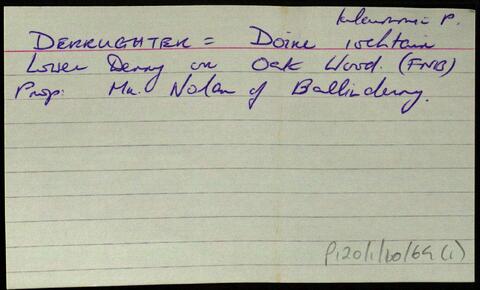 P.
DERRUGHTER = Doire iochtair
Lower Derry or Oak Wood. (FNB)
Prop: Mr. Nolan of Ballinderry.
P120/1/60/69 (1)